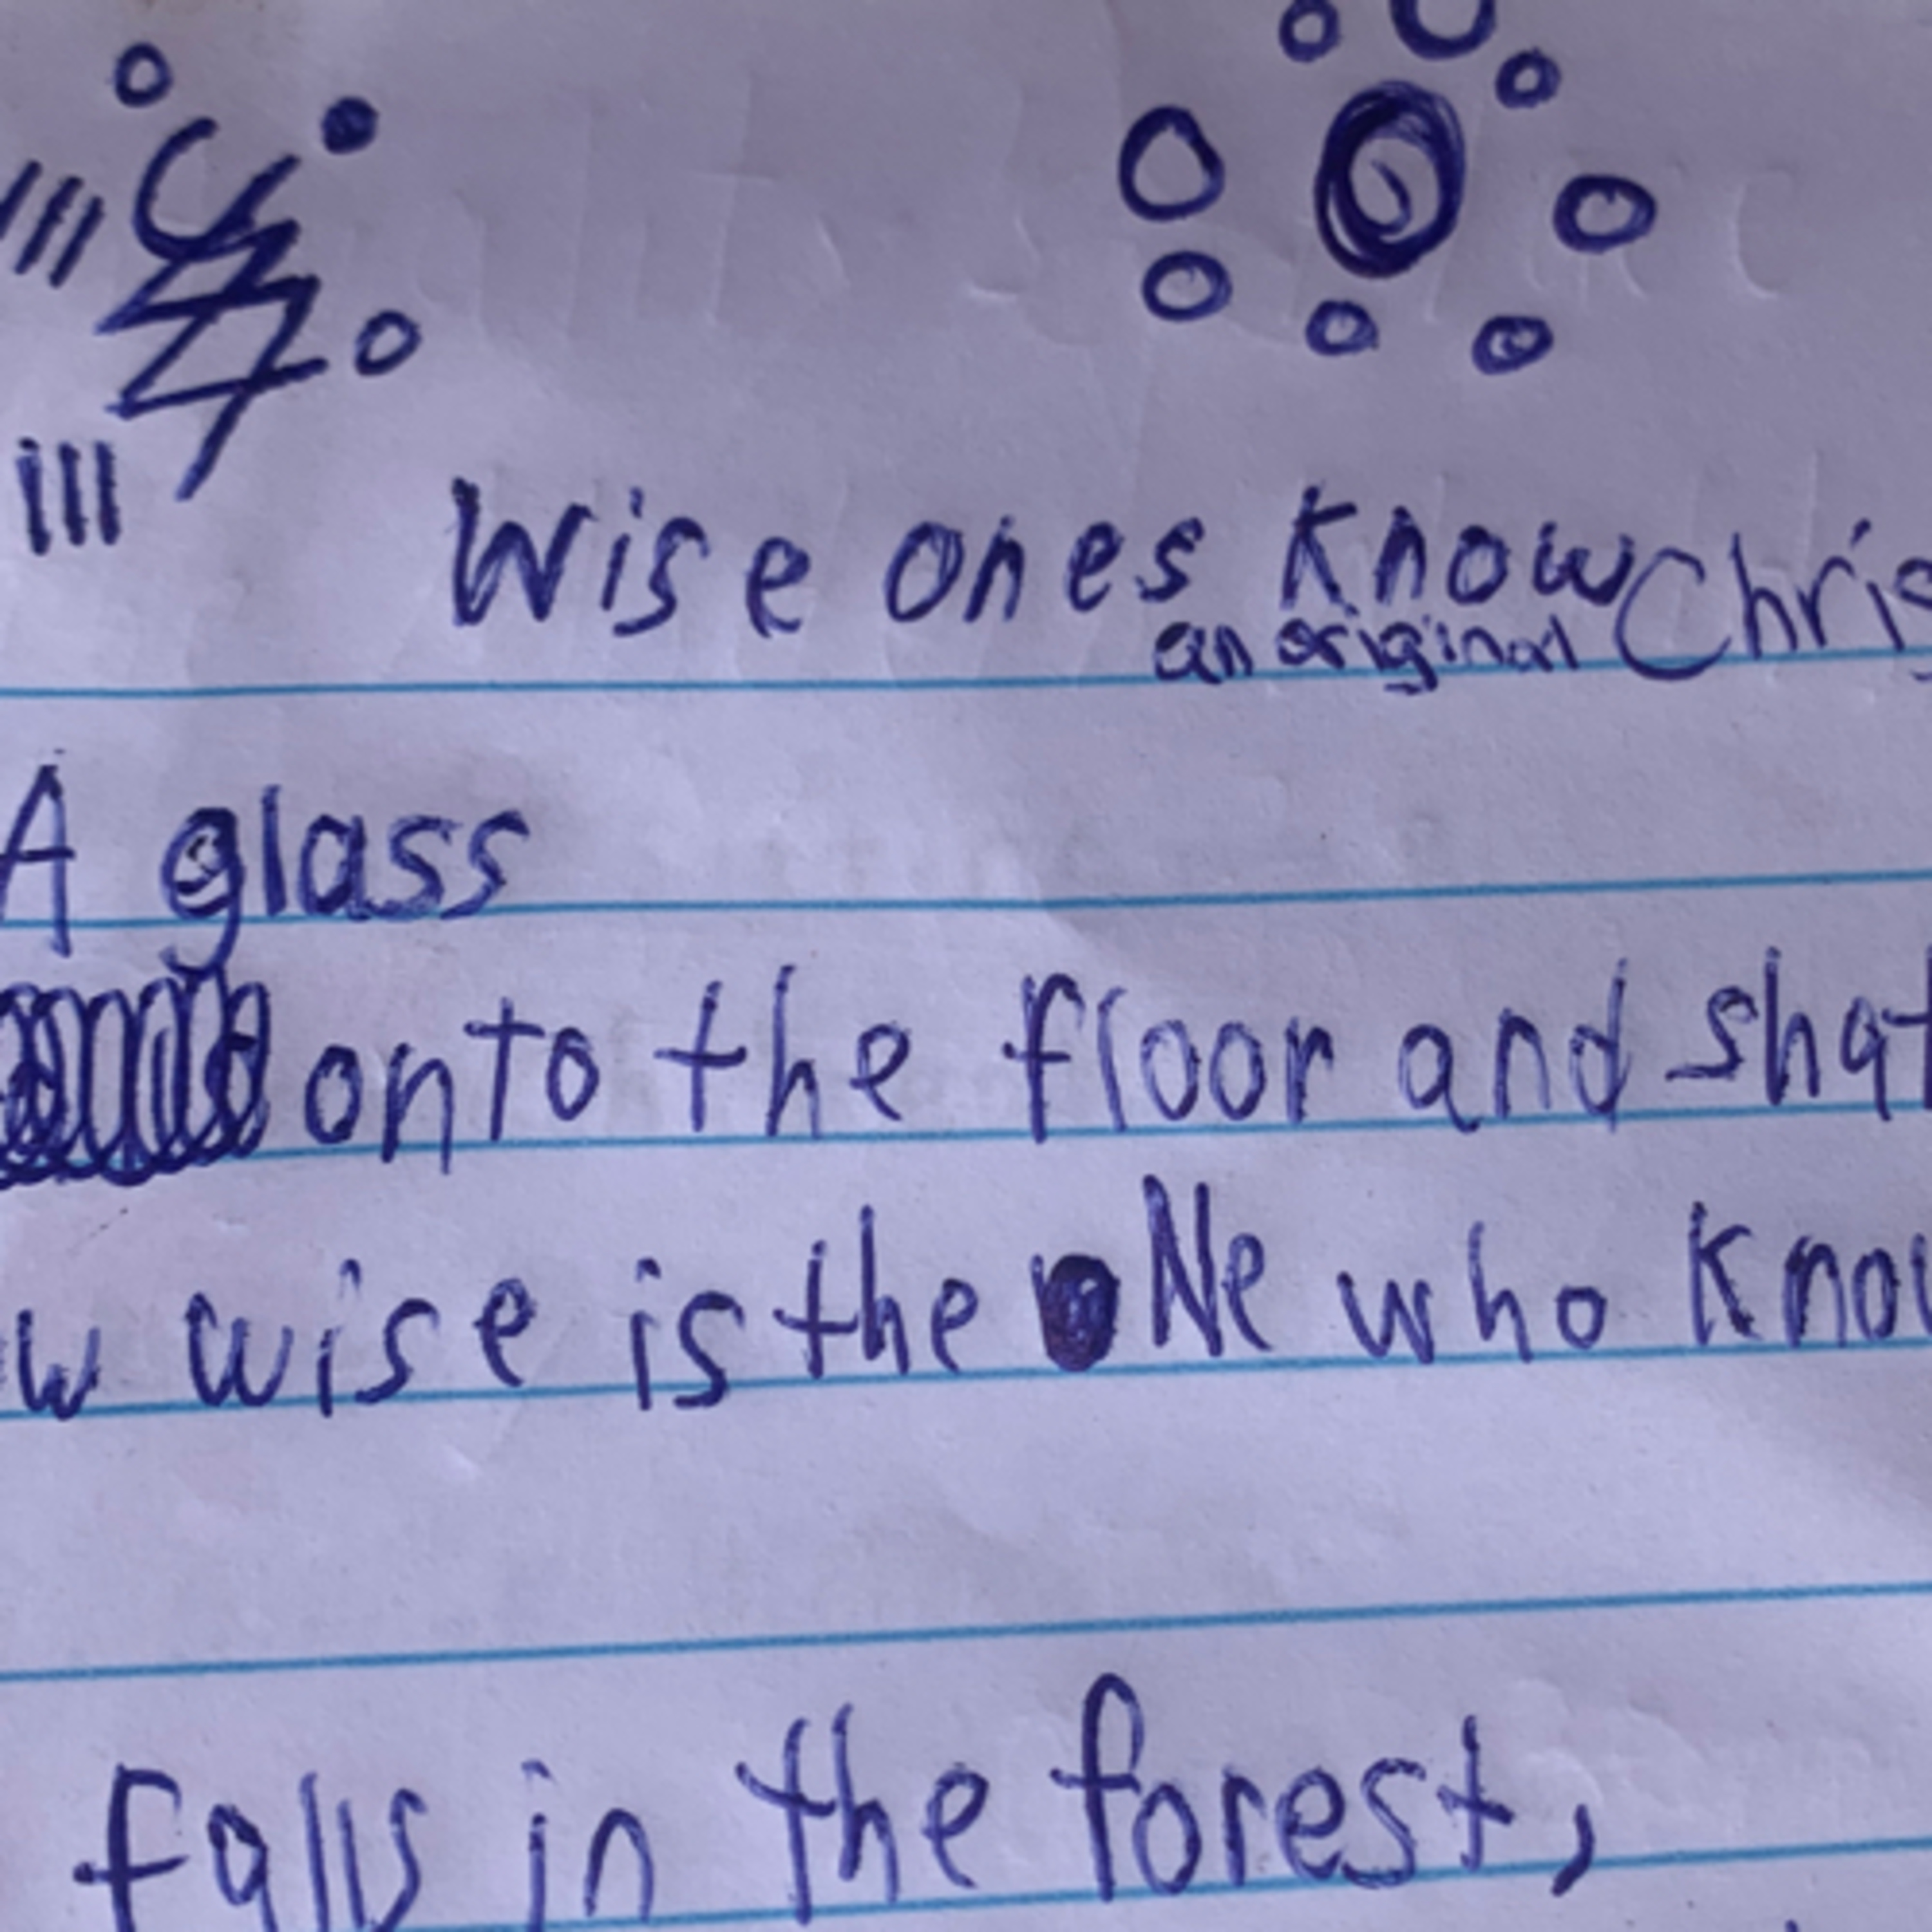 Wise ones know Chris
an original
A glass
onto the floor and shat
w wise is the oNe who know
falls in the forest,